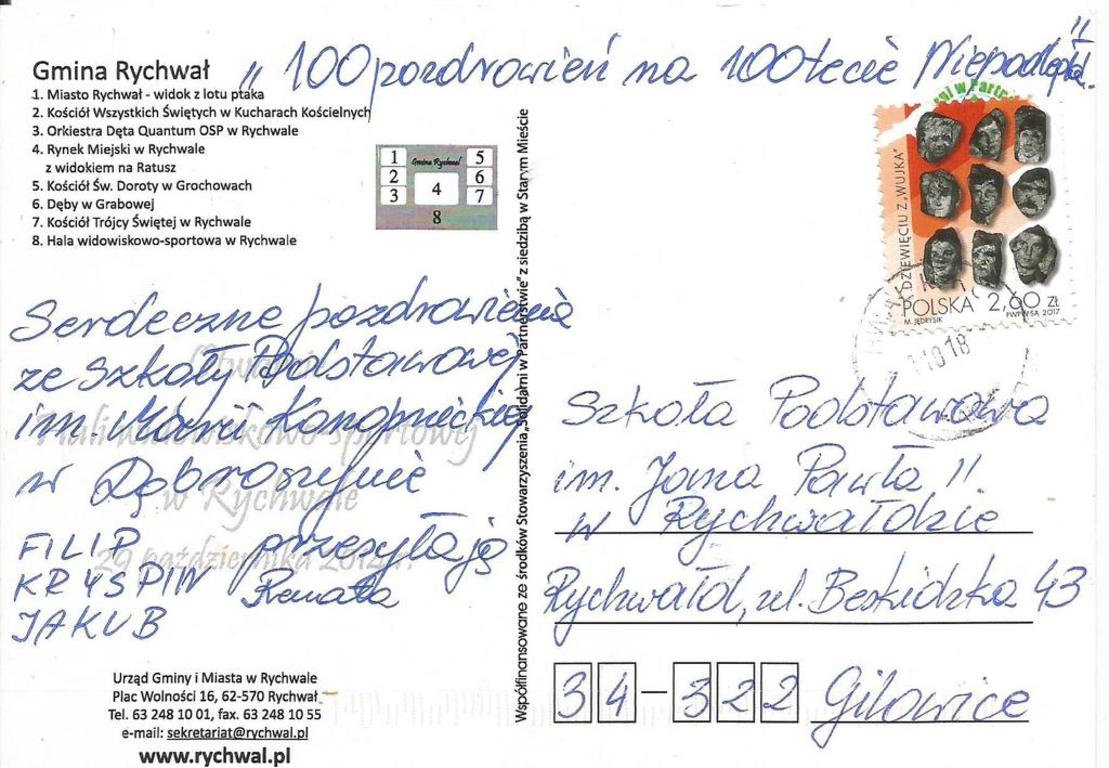 Gmina Rychwał
„100 pozdrowień na 100lecie Niepodległ."
1. Miasto Rychwał - widok z lotu ptaka
2. Kościół Wszystkich Świętych w Kucharach Kościelnych
3. Orkiestra Dęta Quantum OSP w Rychwale
4. Rynek Miejski w Rychwale
z widokiem na Ratusz
5. Kościół Św. Doroty w Grochowach
6. Dęby w Grabowej
7. Kościół Trójcy Świętej w Rychwale
8. Hala widowiskowo-sportowa w Rychwale
Gmina Rychwał
1 5
2 4 6
3 7
8
Serdeczne pozdrowienia
ze Szkoły Podstawowej
im. Marii Konopnickiej
w Dąbroszynie
FILIP przesyłają
KRYSPIN Renata
JAKUB
Otwarcie
Hali widowiskowo-sportowej
w Rychwale
29 października 2012 r.
Urząd Gminy i Miasta w Rychwale
Plac Wolności 16, 62-570 Rychwał
Tel. 63 248 10 01, fax. 63 248 10 55
e-mail: sekretariat@rychwal.pl
www.rychwal.pl
Współfinansowane ze środków Stowarzyszenia „Solidarni w Partnerstwie" z siedzibą w Starym Mieście
DZIEWIĘCIU Z „WUJKA"
POLSKA 2,60 zł
M. JĘDRYSIK PWPW SA 2017
1018
Szkoła Podstawowa
im. Jana Pawła II
w Rychwałdzie
Rychwałd, ul. Beskidzka 43
34-322 Gilowice